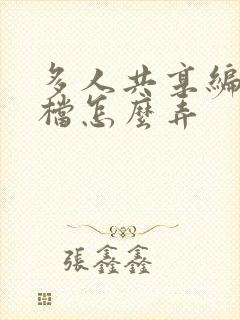 多人共享編
檔怎麼弄
張鑫鑫